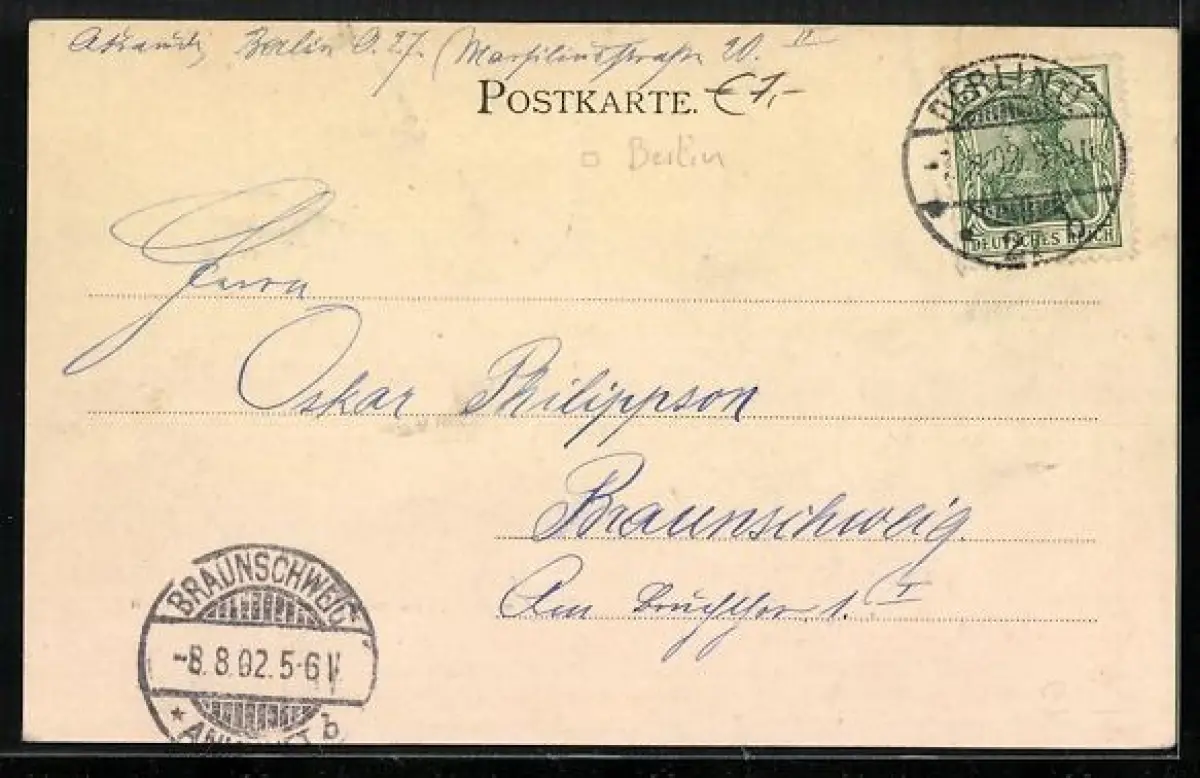 Absend. Berlin O. 27. Marsiliusstraße 20. II
POSTKARTE. € 1,-
Berlin
BERLIN O
5
DEUTSCHES REICH
* 27 b
Herrn
Oskar Philippson
Braunschweig.
Am Bruchthor 1. I
BRAUNSCHWEIG
-8.8.02.5-6 V
* ANKUNFT b